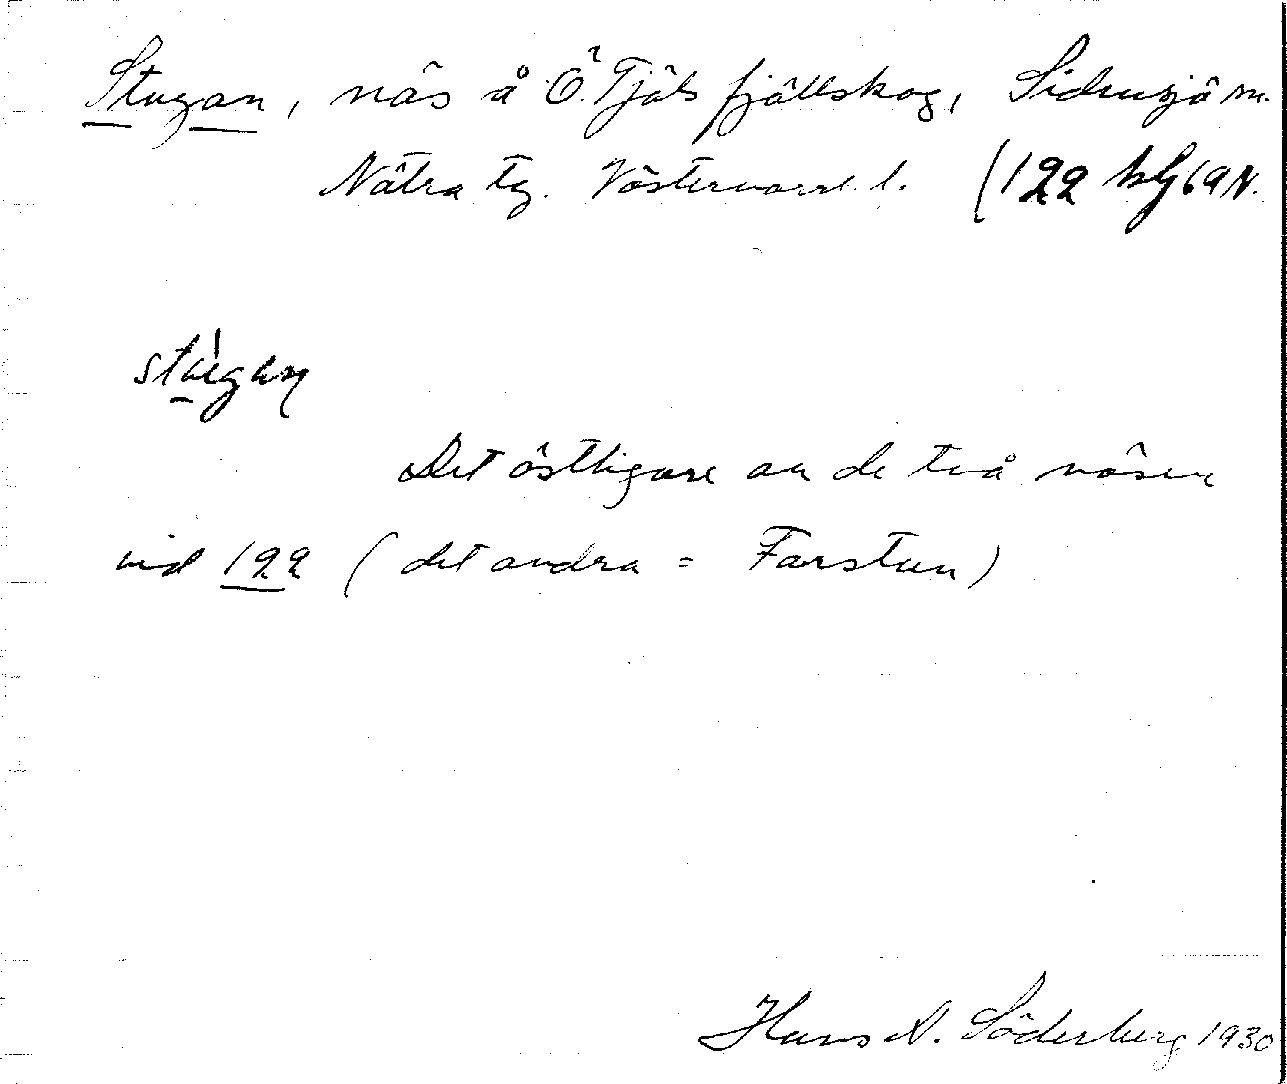 Stugan, näs å Ö. Tjäls fjällskog, Sidensjö sn.
Nätra tg. Västernorrl. l. (122 bl 69 N.
stúgan
Det östligare av de två näsen
vid 122 (det andra = Farstun)
Hans A. Söderberg 1930